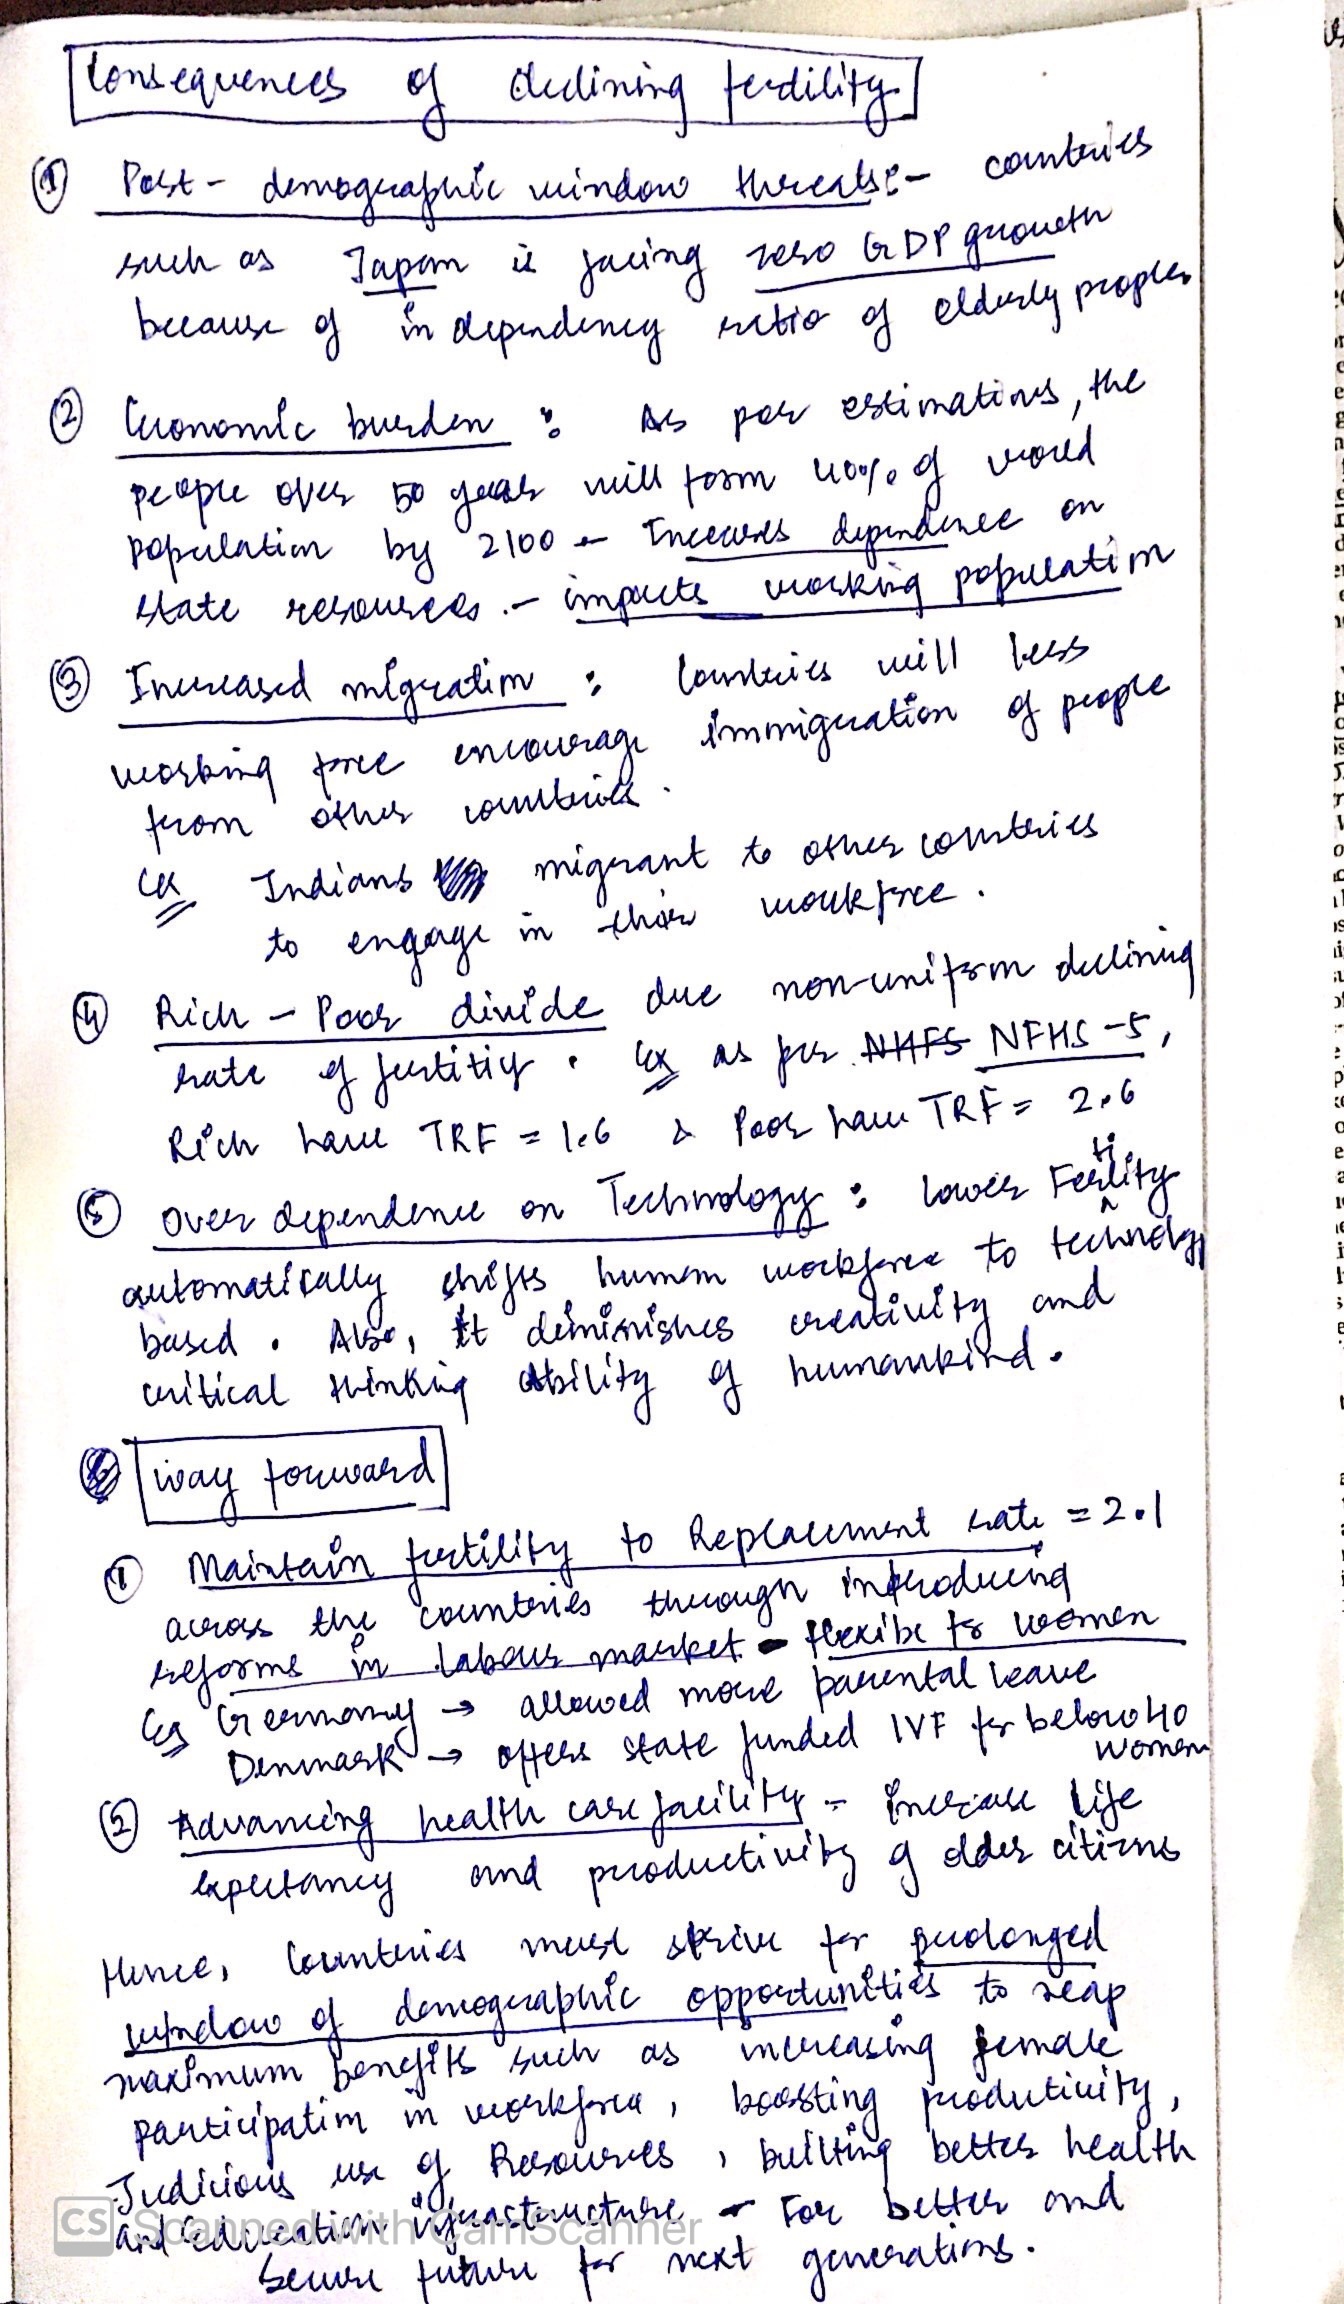 Consequences of declining fertility
① Post - demographic window threats:- countries
such as Japan is facing zero GDP growth
because of in dependency ratio of elderly peoples
② Economic burden : As per estimations, the
people over 50 years will form 40% of world
population by 2100 - Increases dependence on
state resources. - impacts working population
③ Increased migration : Countries will less
working force encourage immigration of people
from other countries.
Ex Indians migrant to other countries
to engage in their workforce.
④ Rich - Poor divide due non-uniform declining
rate of fertitiy. Ex as per NHFS NFHS-5,
Rich have TRF = 1.6 & Poor have TRF = 2.6
⑤ Over dependence on Technology : lower Fertility
automatically shifts human workforce to technology
based. Also, it deminishes creativity and
critical thinking ability of humankind.
Way forward
① Maintain fertility to Replacement rate = 2.1
across the countries through introducing
reforms in labour market - flexibe for women
Eg Germany → allowed more parental leave
Denmark → offers state funded IVF for below 40
women
② Advancing health care facility - increase life
expectancy and productivity of older citizens
Hence, Countries must strive for prolonged
window of demographic opportunities to reap
maximum benefits such as increasing female
participation in workforce, boosting productivity,
Judicious use of Resources, builting better health
and education infrastructure - For better and
secure future for next generations.
CS Scanned with CamScanner